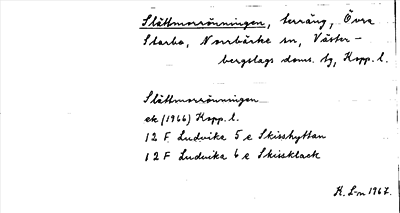 Slättmorrönningen, terräng, Övra
Starbo, Norrbärke sn, Väster-
bergslags doms. tg, Kopp. l.
Slättmorrönningen
ek (1966) Kopp. l.
12 F Ludvika 5 e Skisshyttan
12 F Ludvika 6 e Skissklack
K. L-m 1967.